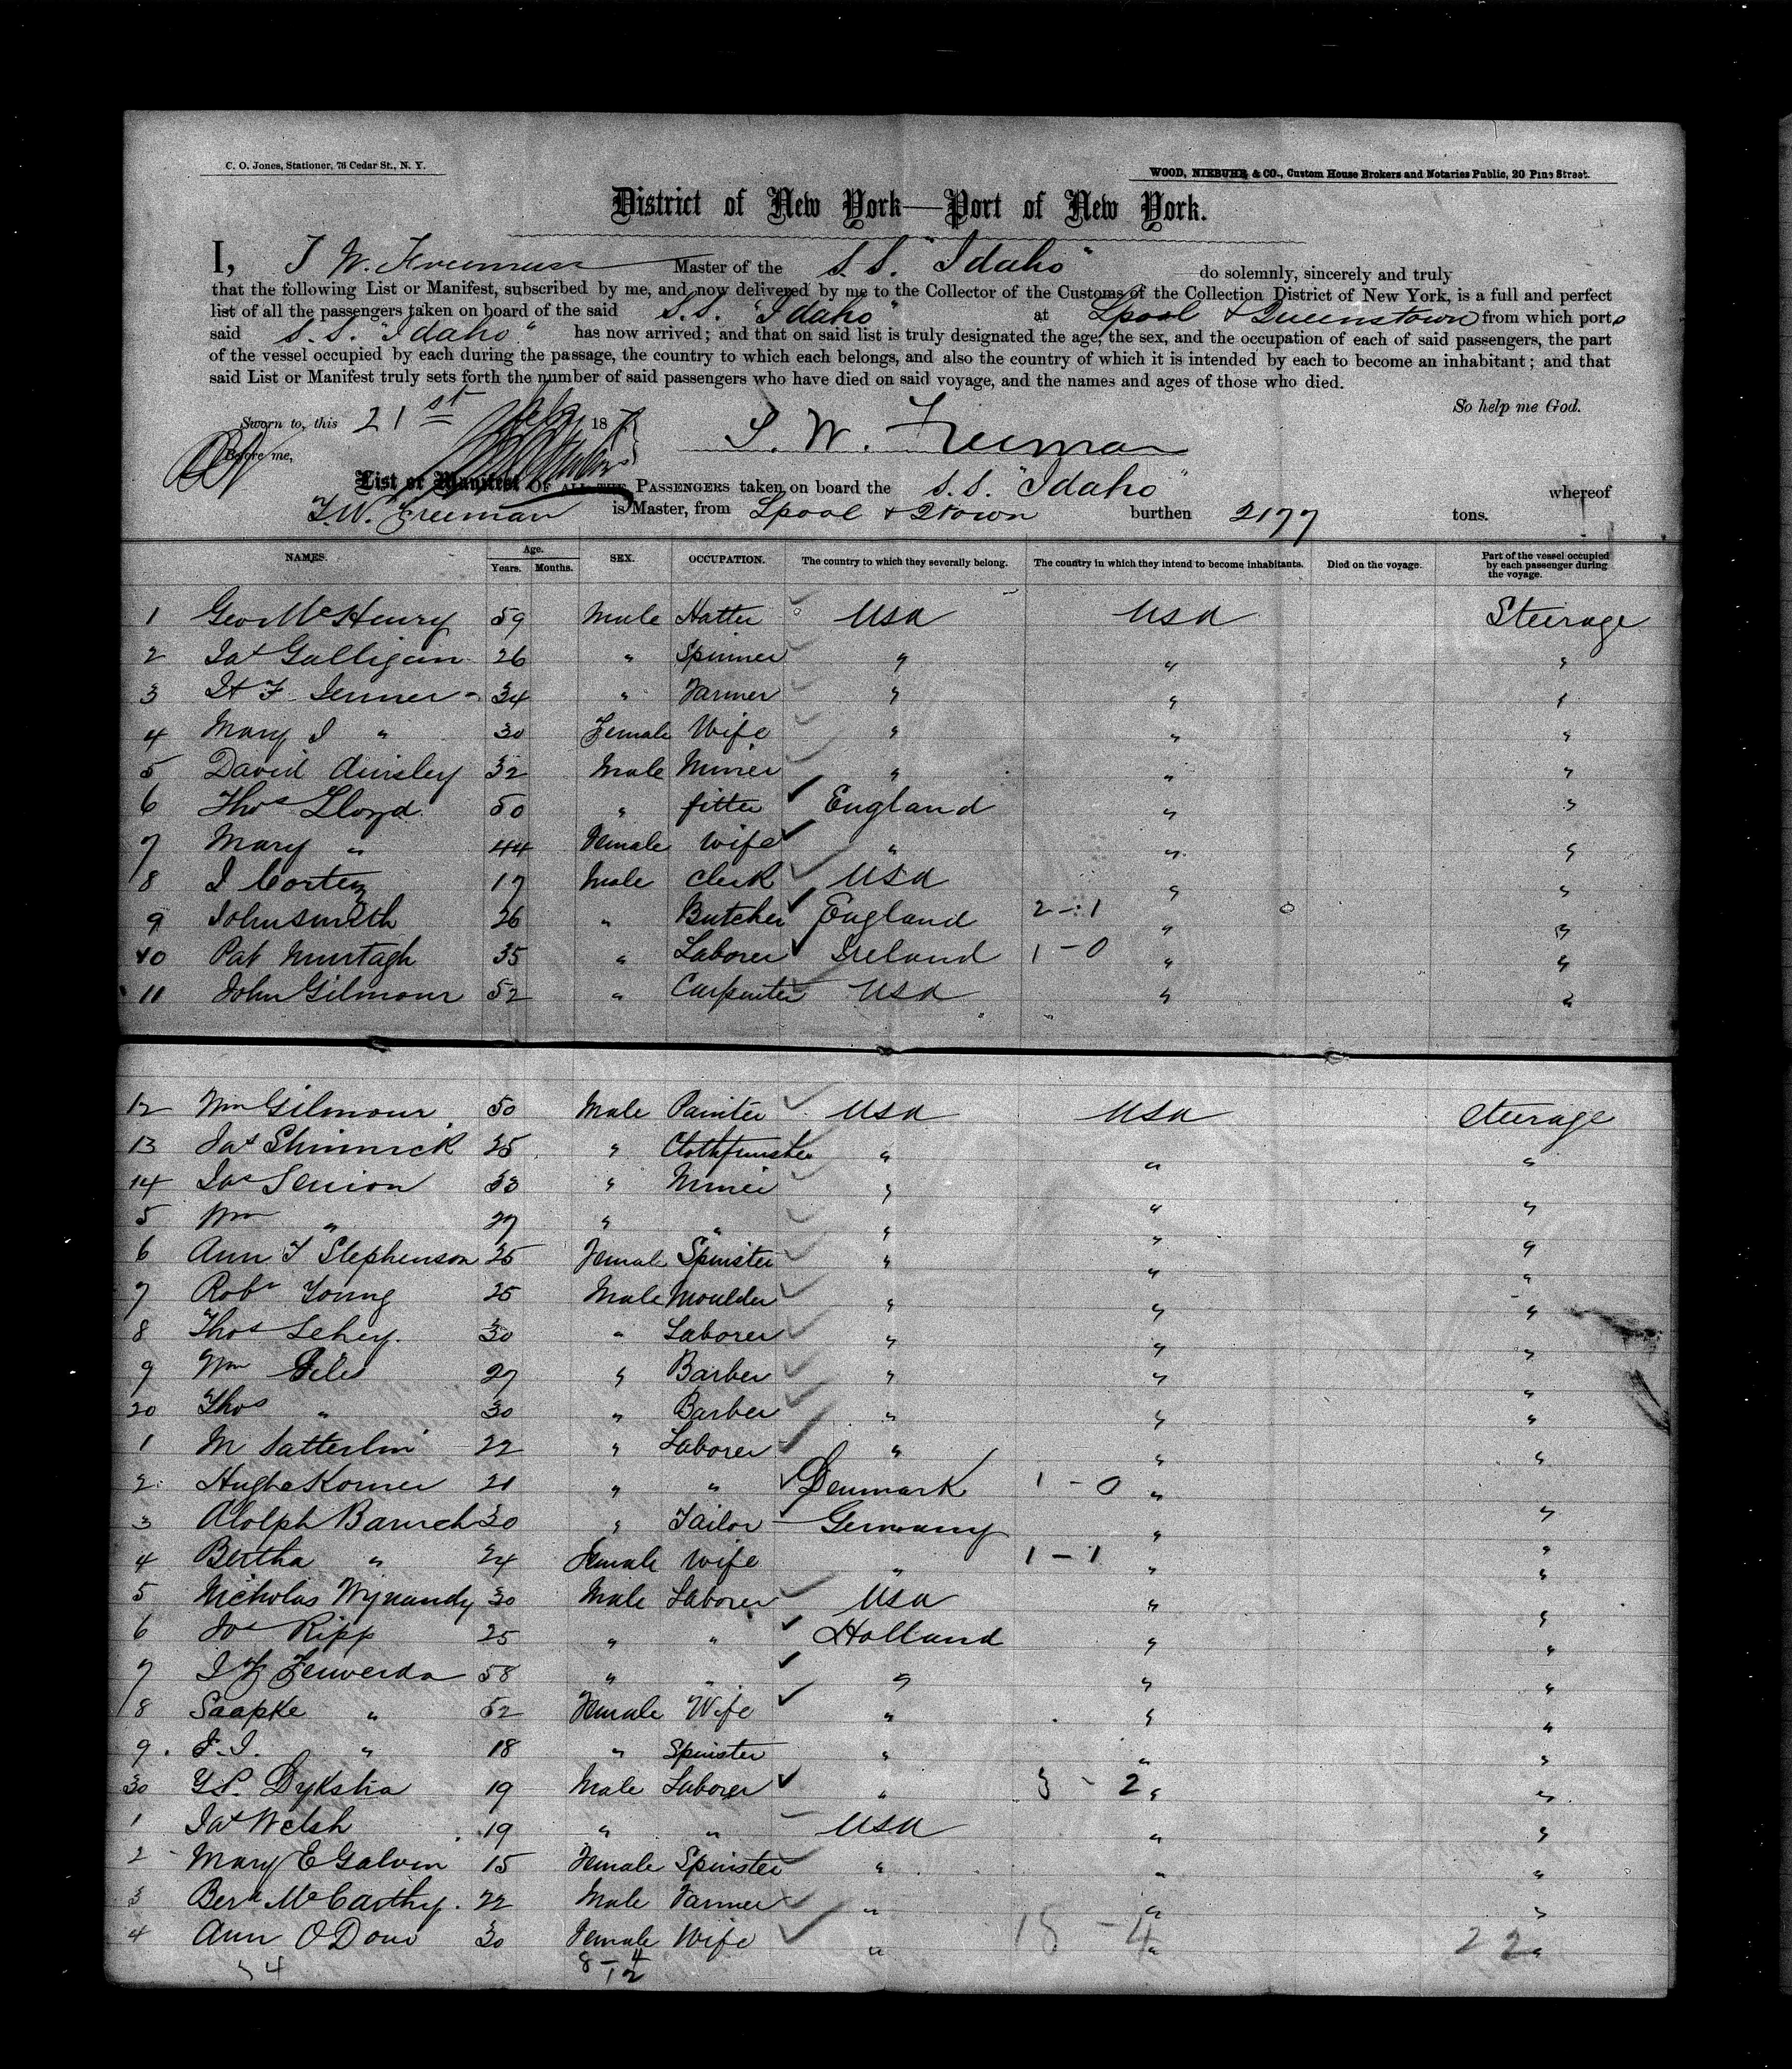 C. O. Jones, Stationer, 76 Cedar St., N. Y.
WOOD, NIEBUHR & CO., Custom House Brokers and Notaries Public, 20 Pine Street.
District of New York—Port of New York.
I, J W. Freeman Master of the S.S. "Idaho" do solemnly, sincerely and truly
that the following List or Manifest, subscribed by me, and now delivered by me to the Collector of the Customs of the Collection District of New York, is a full and perfect
list of all the passengers taken on board of the said S.S. "Idaho" at Lpool & Queenstown from which ports
said S.S. "Idaho" has now arrived; and that on said list is truly designated the age, the sex, and the occupation of each of said passengers, the part
of the vessel occupied by each during the passage, the country to which each belongs, and also the country of which it is intended by each to become an inhabitant; and that
said List or Manifest truly sets forth the number of said passengers who have died on said voyage, and the names and ages of those who died.
So help me God.
Sworn to, this 21st 187
W. Freeman
Before me,
List or Manifest OF ALL THE PASSENGERS taken on board the S.S. "Idaho" whereof
W. Freeman is Master, from Lpool & Qtown burthen 2177 tons.
NAMES. Age. Years. Months. SEX. OCCUPATION. The country to which they severally belong. The country in which they intend to become inhabitants. Died on the voyage. Part of the vessel occupied by each passenger during the voyage.
1 Geo McHenry 59 Male Hatter USA USA Steerage
2 Jas Galligan 26 " Spinner " " "
3 Jenner 34 " Farmer " " "
4 Mary J " 30 Female Wife " " "
5 David Ainsley 32 Male Miner " " "
6 Thos Lloyd 50 " fitter England " "
7 Mary " 44 Female Wife " " "
8 J Cortez 17 Male Clerk USA " "
9 John Smith 26 " Butcher England 2-1 " "
10 Pat Murtagh 35 " Laborer Ireland 1-0 " "
11 John Gilmour 52 " Carpenter USA " "
12 Wm Gilmour 50 Male Painter USA USA Steerage
13 Jas Shinnick 25 " Clothfinisher " " "
14 Jas Senior 33 " Miner " " "
5 Wm " 27 " " " " "
6 Ann T Stephenson 25 Female Spinster " " "
7 Robt Young 25 Male Moulder " " "
8 Thos Lehey 30 " Laborer " " "
9 Wm Giles 27 " Barber " " "
20 Thos " 30 " Barber " " "
1 M 22 " Laborer " " "
2 Hugh Korner 21 " " Denmark 1-0 " "
3 Adolph Baruch 30 " Tailor Germany " "
4 Bertha " 24 Female Wife " 1-1 " "
5 Nicholas Wynandy 30 Male Laborer USA " "
6 Jos Ripp 25 " " Holland " "
7 58 " " " " "
8 Saapke " 52 Female Wife " " "
9 " 18 " Spinster " " "
30 Dykstra 19 Male Laborer " 3-2 " "
1 Jas Welsh 19 " " USA " "
2 Mary E Galvin 15 Female Spinster " " "
3 Berd McCarthy 22 Male Farmer " " "
4 Ann O Dono 30 Female Wife " 18-4 " 22 "
34